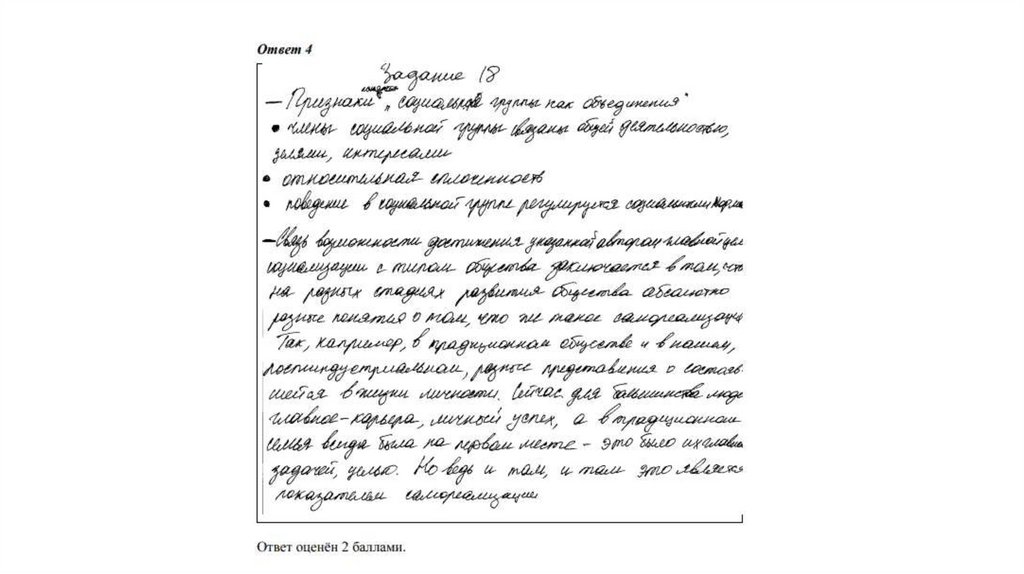 Ответ 4
Задание 18
— Признаки "социальной группы как объединения"
• члены социальной группы связаны общей деятельностью,
целями, интересами
• относительная сплочённость
• поведение в социальной группе регулируется социальными норма
— Связь возможности достижения указанной автором главной цели
социализации с типом общества заключается в том, что
на разных стадиях развития общества абсолютно
разные понятия о том, что же такое самореализация
Так, например, в традиционном обществе и в нашем,
постиндустриальном, разные представления о состояв-
шейся в жизни личности. Сейчас для большинства люде
главное – карьера, личный успех, а в традиционном
семья всегда была на первом месте – это было их главн
задачей, целью. Но ведь и там, и там это являетс
показателем самореализации
Ответ оценён 2 баллами.